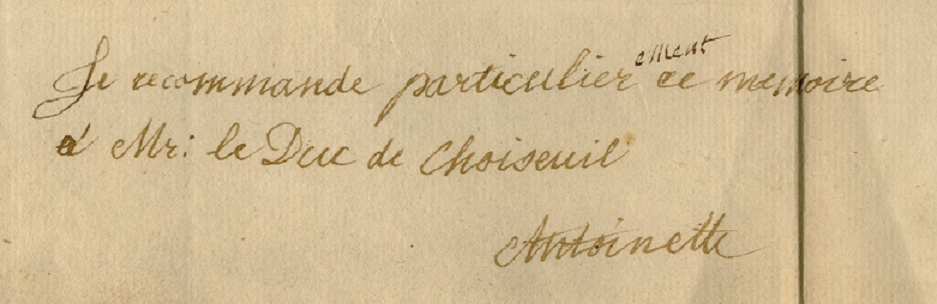 Je recommande particulierement ce memoire
a Mr: le Duc de Choiseuil
Antoinette